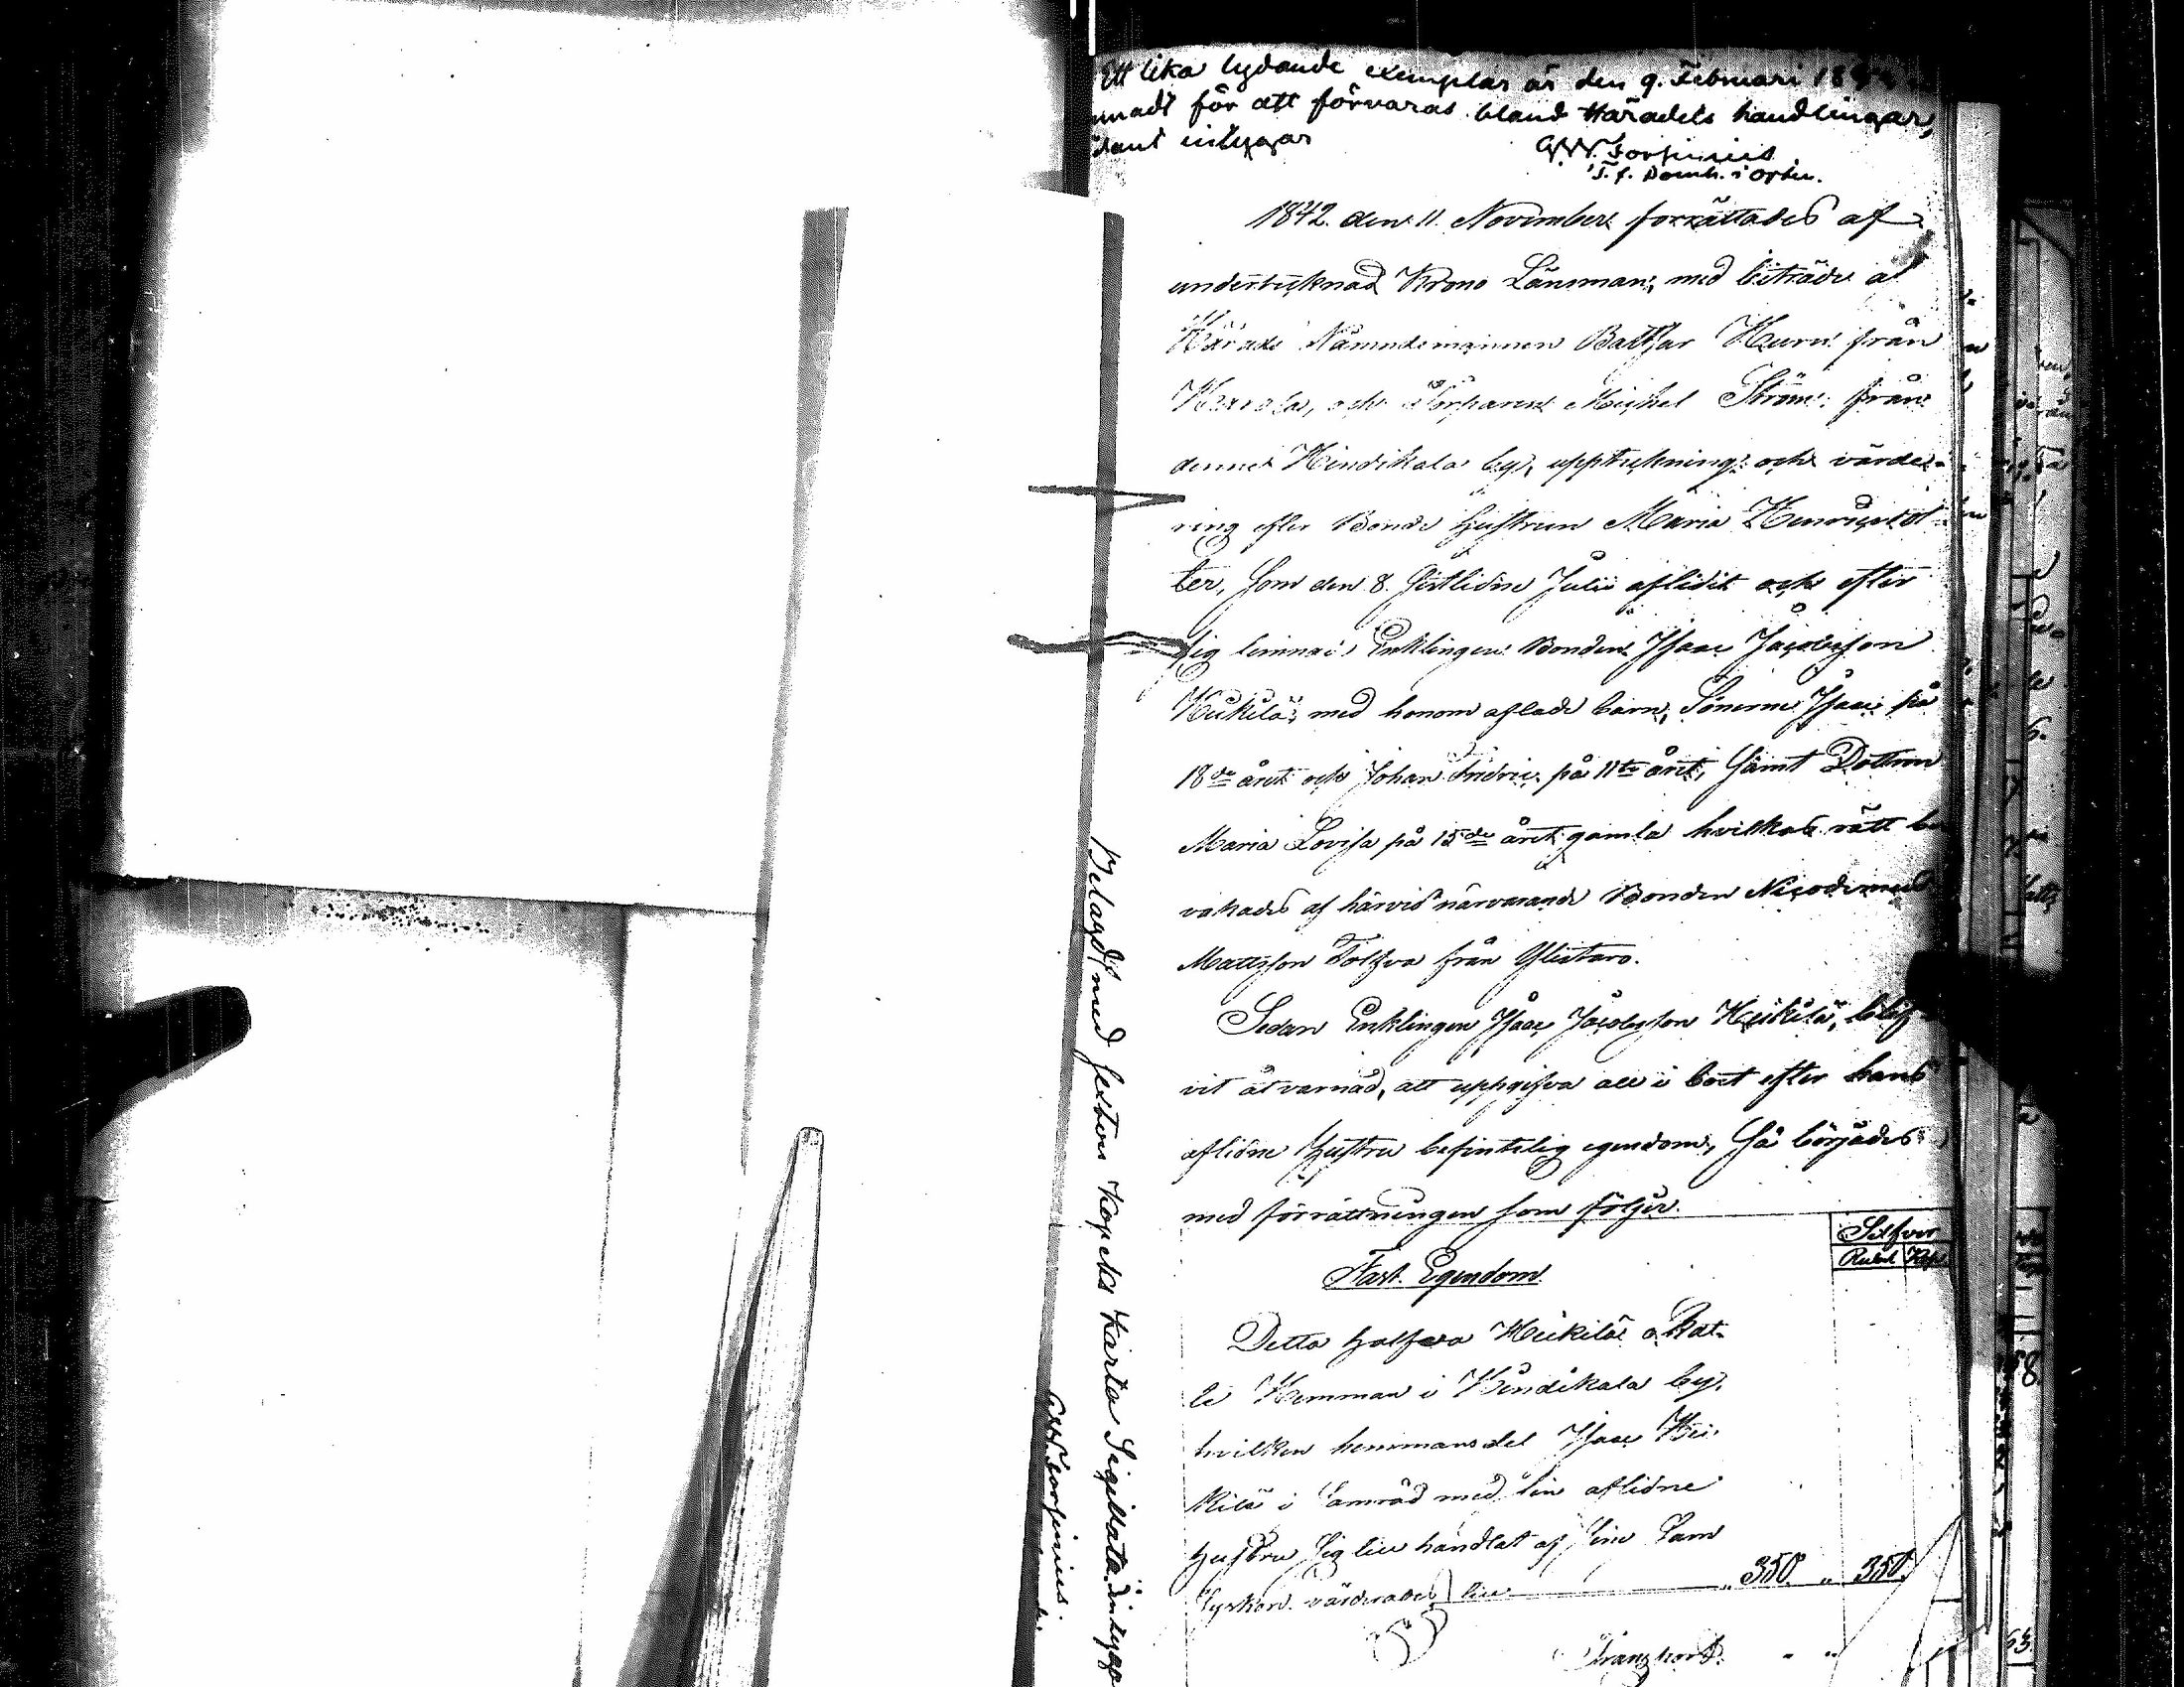 Ett lika lydande exemplar är den 9. Februari 18
mnadt för att förvaras bland Häradets handlingar,
intygar
G.W. Forsinius
T.f. Domh. i orten.
1842. den 11. November förrättades af
undertecknad Krono Länsman, med biträde af
Härads Nämndemannen Baltzar Huru från
och Torparen Michel Ström från
denna Hindikala by, uppteckning och värde-
ring efter Bonde Hustrun Maria Henricsdot
ter, som den 8. sistlidne Julii aflidit och efter
sig lemnat Enklingen Bonden Isaac Jacobsson
Heikilä, med honom aflade barn, Sönerne Isaac på
18de året och Johan Fredric på 11te året, samt Dottren
Maria Lovisa på 15de året gamla hvilkas rätt be
vakades af härvid närvarande Bonden Nicodemus
Mattsson Tolfva från
Sedan Enklingen Isaac Jacobsson Heikilä, blif
vit åtvarnad, att uppgifva all i boet efter hans
aflidne Hustru befintelig egendom, så börjades
med förrättningen som följer.
Silfver
Rubel Kop.
Fast Egendom
Detta halfva Heikilä
Hemman i Hindikala by,
hvilken hemmansdel Isaac Hei-
kilä i samråd med sin aflidne
Hustru sig till handlat af sine Sam
Syskon värderades till " 350 " 350.
Transport " "
Belagdt med sextio Kopeks Karta Sigillata intyga
G.W. Forsinius